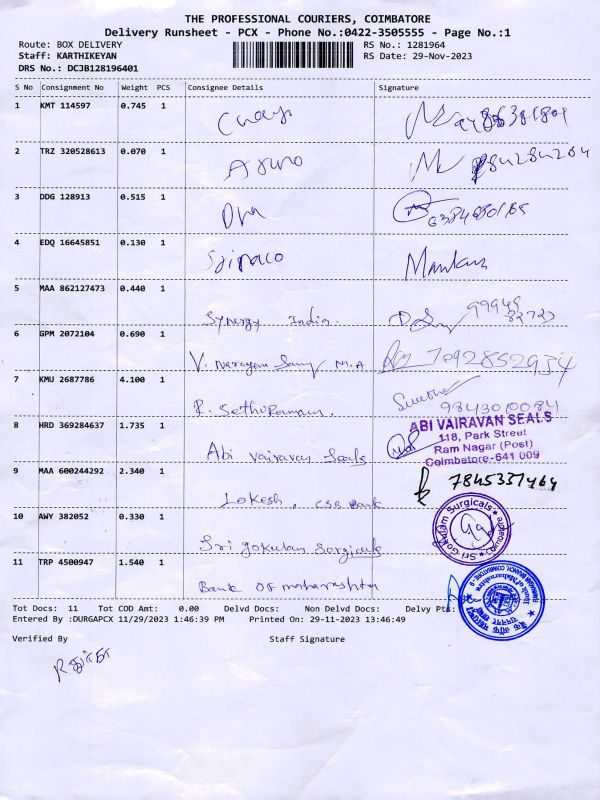 THE PROFESSIONAL COURIERS, COIMBATORE
Delivery Runsheet - PCX - Phone No.:0422-3505555 - Page No.:1
Route: BOX DELIVERY
RS No.: 1281964
Staff: KARTHIKEYAN
RS Date: 29-Nov-2023
DRS No.: DCJB128196401
S No Consignment No Weight PCS Consignee Details Signature
1 KMT 114597 0.745 1
2 TRZ 320528613 0.070 1
3 DDG 128913 0.515 1
4 EDQ 16645851 0.130 1
5 MAA 862127473 0.440 1 Synergy India.
6 GPM 2072104 0.690 1 V. Narayan Samy M.A 7092852934
7 KMU 2687786 4.100 1 R. Sethuraman. 9843010084
8 HRD 369284637 1.735 1 Abi Vairavan Seals
ABI VAIRAVAN SEALS
118, Park Street
Ram Nagar (Post)
Coimbatore-641 009
9 MAA 600244292 2.340 1 Lokesh. CSB Bank 7845337464
10 AWY 382052 0.330 1 Sri gokulam Surgicals
Sri Gokulam Surgicals Coimbatore
11 TRP 4500947 1.540 1 Bank Of maharashtra
Bank of Maharashtra
Tot Docs: 11 Tot COD Amt: 0.00 Delvd Docs: Non Delvd Docs: Delvy Pts:
Entered By :DURGAPCX 11/29/2023 1:46:39 PM Printed On: 29-11-2023 13:46:49
Verified By Staff Signature